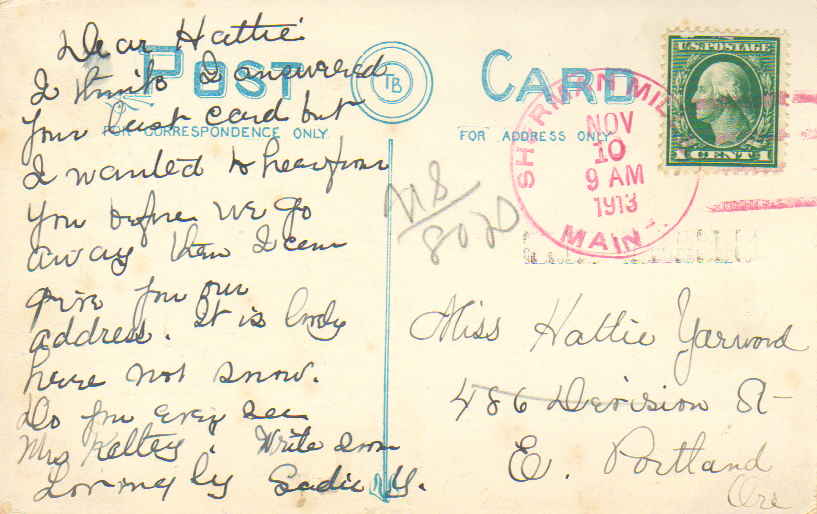 Dear Hattie
POST CARD
TB
I think I answered
your last card but
FOR CORRESPONDENCE ONLY
FOR ADDRESS ONLY
I wanted to hear from
you before we go
away then I can
give you our
address. It is lovely
here not snow.
Do you ever see
Mrs Kelley. Write soon
Lovingly Sadie Y.
U.S. POSTAGE
1 CENT 1
SHERMAN MIL
NOV
10
9 AM
1913
MAINE
Miss Hattie Yarwood
486 Division St
E. Portland
Ore